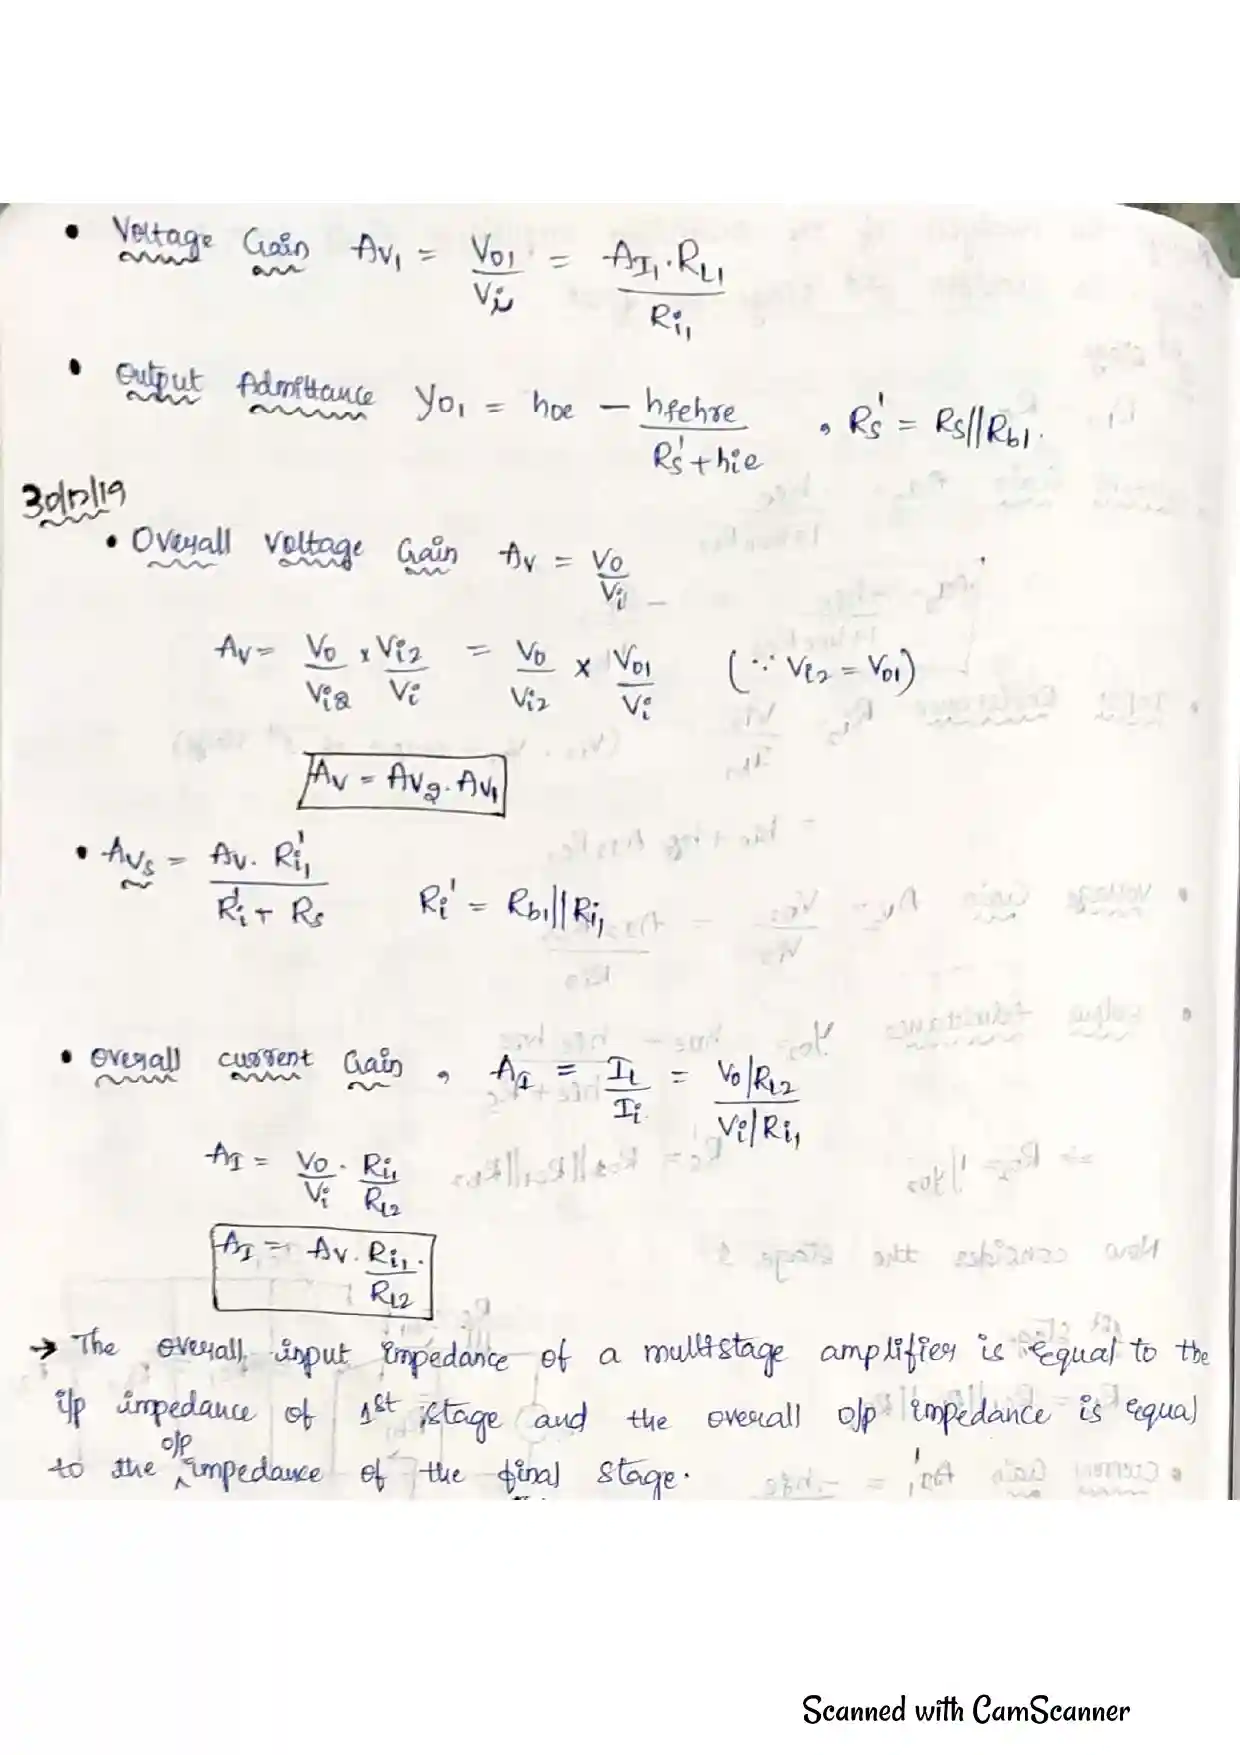 • Voltage Gain Av₁ = Vo1/Vi = AI₁.RL1/Ri₁
• Output Admittance Yo₁ = hoe – hfehre/(Rs'+hie) , Rs' = Rs//Rb1.
30/12/19
• Overall Voltage Gain Av = Vo/Vi
Av = Vo/Vi2 x Vi2/Vi = Vo/Vi2 x Vo1/Vi (∵ Vi2 = Vo1)
Av = Av2. Av₁
• Avs = Av. Ri₁'/(Ri'+ Rs) Ri' = Rb1||Ri₁
• Overall current Gain , AI = IL/Ii = (Vo/RL2)/(Vi/Ri₁)
AI = Vo/Vi . Ri₁/RL2
AI = Av. Ri₁/RL2.
→ The overall input impedance of a multistage amplifier is equal to the
i/p impedance of 1st stage and the overall o/p impedance is equal
to the o/p impedance of the final stage.
Scanned with CamScanner